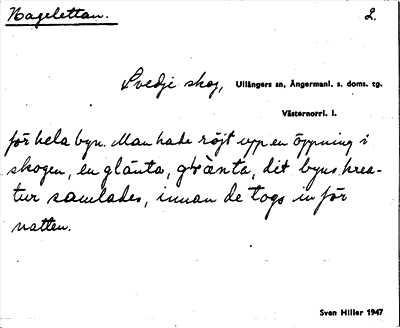 Nagelettan. 2.
Svedje skog, Ullångers sn, Ångermanl. s. doms. tg.
Västernorrl. l.
för hela byn. Man hade röjt upp en öppning i
skogen, en glänta, grànta, dit byns krea-
tur samlades, innan de togs in för
natten.
Sven Hiller 1947